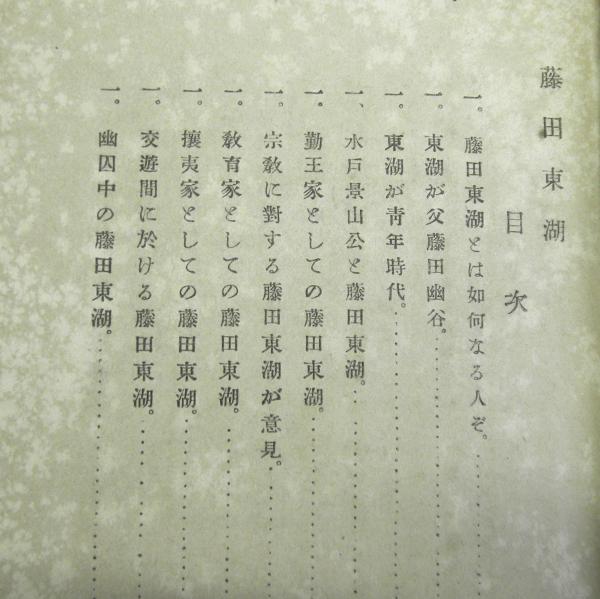 藤田東湖
目次
一。藤田東湖とは如何なる人ぞ。
一。東湖が父藤田幽谷。
一。東湖が青年時代。
一、水戸景山公と藤田東湖。
一。勤王家としての藤田東湖。
一。宗教に對する藤田東湖が意見。
一。教育家としての藤田東湖。
一。攘夷家としての藤田東湖。
一。交遊間に於ける藤田東湖。
一。幽囚中の藤田東湖。